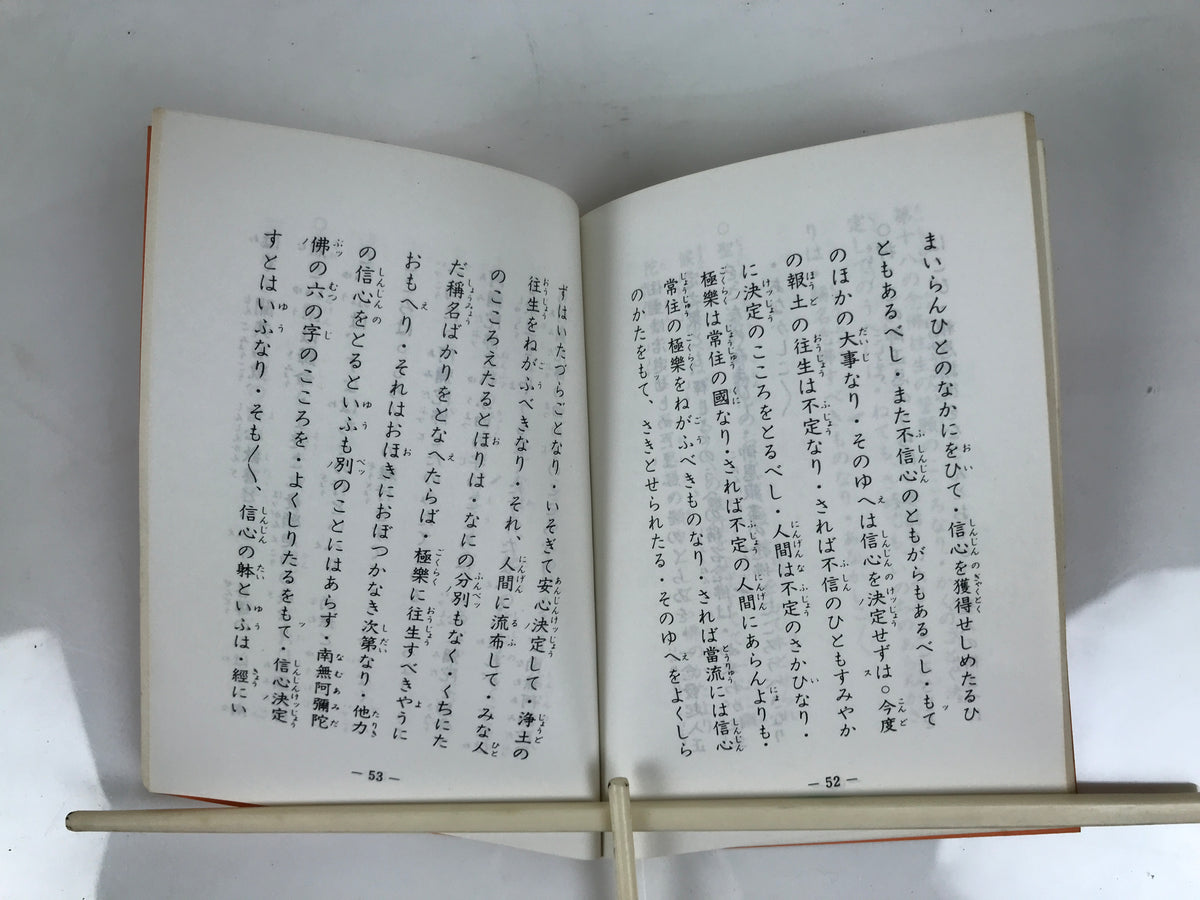 まいらんひとのなかにをひて・信心を獲得せしめたるひ
ともあるべし・また不信心のともがらもあるべし・もて
のほかの大事なり・そのゆへは信心を決定せずは○今度
の報土の往生は不定なり・されば不信のひともすみやか
に決定のこころをとるべし・人間は不定のさかひなり・
極樂は常住の國なり・されば不定の人間にあらんよりも・
常住の極樂をねがふべきものなり・されば當流には信心
のかたをもて、さきとせられたる・そのゆへをよくしら
— 52 —
ずはいたづらごとなり・いそぎて安心決定して・浄土の
往生をねがふべきなり・それ、人間に流布して・みな人
のこころえたるとほりは・なにの分別もなく・くちにた
だ稱名ばかりをとなへたらば・極樂に往生すべきやうに
おもへり・それはおほきにおぼつかなき次第なり・他力
の信心をとるといふも別のことにはあらず・南無阿彌陀
佛の六の字のこころを・よくしりたるをもて・信心決定
すとはいふなり・そも〱、信心の躰といふは・經にい
— 53 —